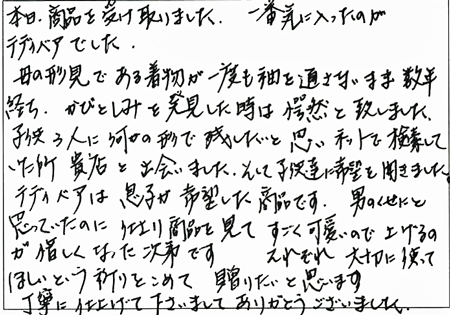 本日、商品を受け取りました。 一番気に入ったのが
テディベアでした。
母の形見である着物が一度も袖を通さないまま数年
経ち、かびとしみを発見した時は愕然と致しました。
子供3人に何かの形で残したいと思いネットで検索して
いた所 貴店と出会いました。そして子供達に希望を聞きました
テディベアは息子が希望した商品です。 男のくせにと
思っていたのに仕上り商品を見て すごく可愛いので上げるの
が惜しくなった次第です それぞれ大切に使って
ほしいという祈りをこめて 贈りたいと思います
丁寧に仕上げて下さいましてありがとうございました。